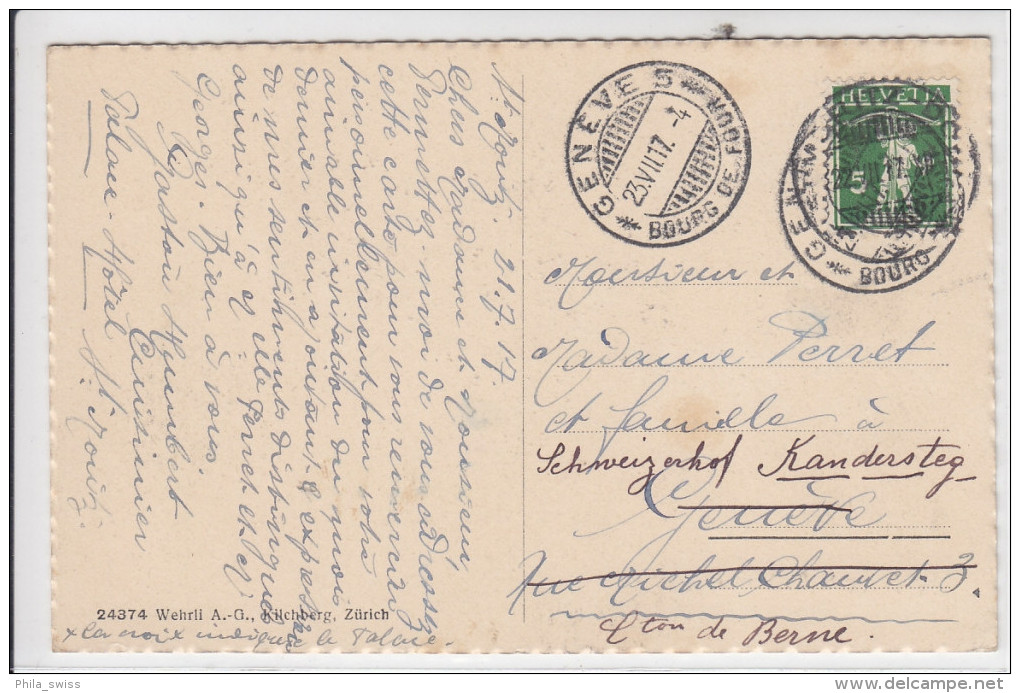 St. Moritz, 21.7.17
Chers Madame et Monsieur,
Permettez-moi de vous adresser
cette carte pour vous remercier
personnellement pour votre
aimable invitation du mois
dernier et en ajoutant l'expression
de mes sentiments distingués
ainsi qu'à
Georges. Bien à vous.
Gaston Humbert
Cuisinier
Palace-Hôtel St. Moritz.
24374 Wehrli A.-G., Kilchberg, Zürich
x la croix indique le Palace.
GENÈVE 5
23.VII.17.-4
BOURG DE FOUR
HELVETIA
5
BOURG
Monsieur et
Madame Perret
et famille à
Schweizerhof Kandersteg
Genève
Rue Michel Chauvet 3
Cton de Berne.
Phila_swiss